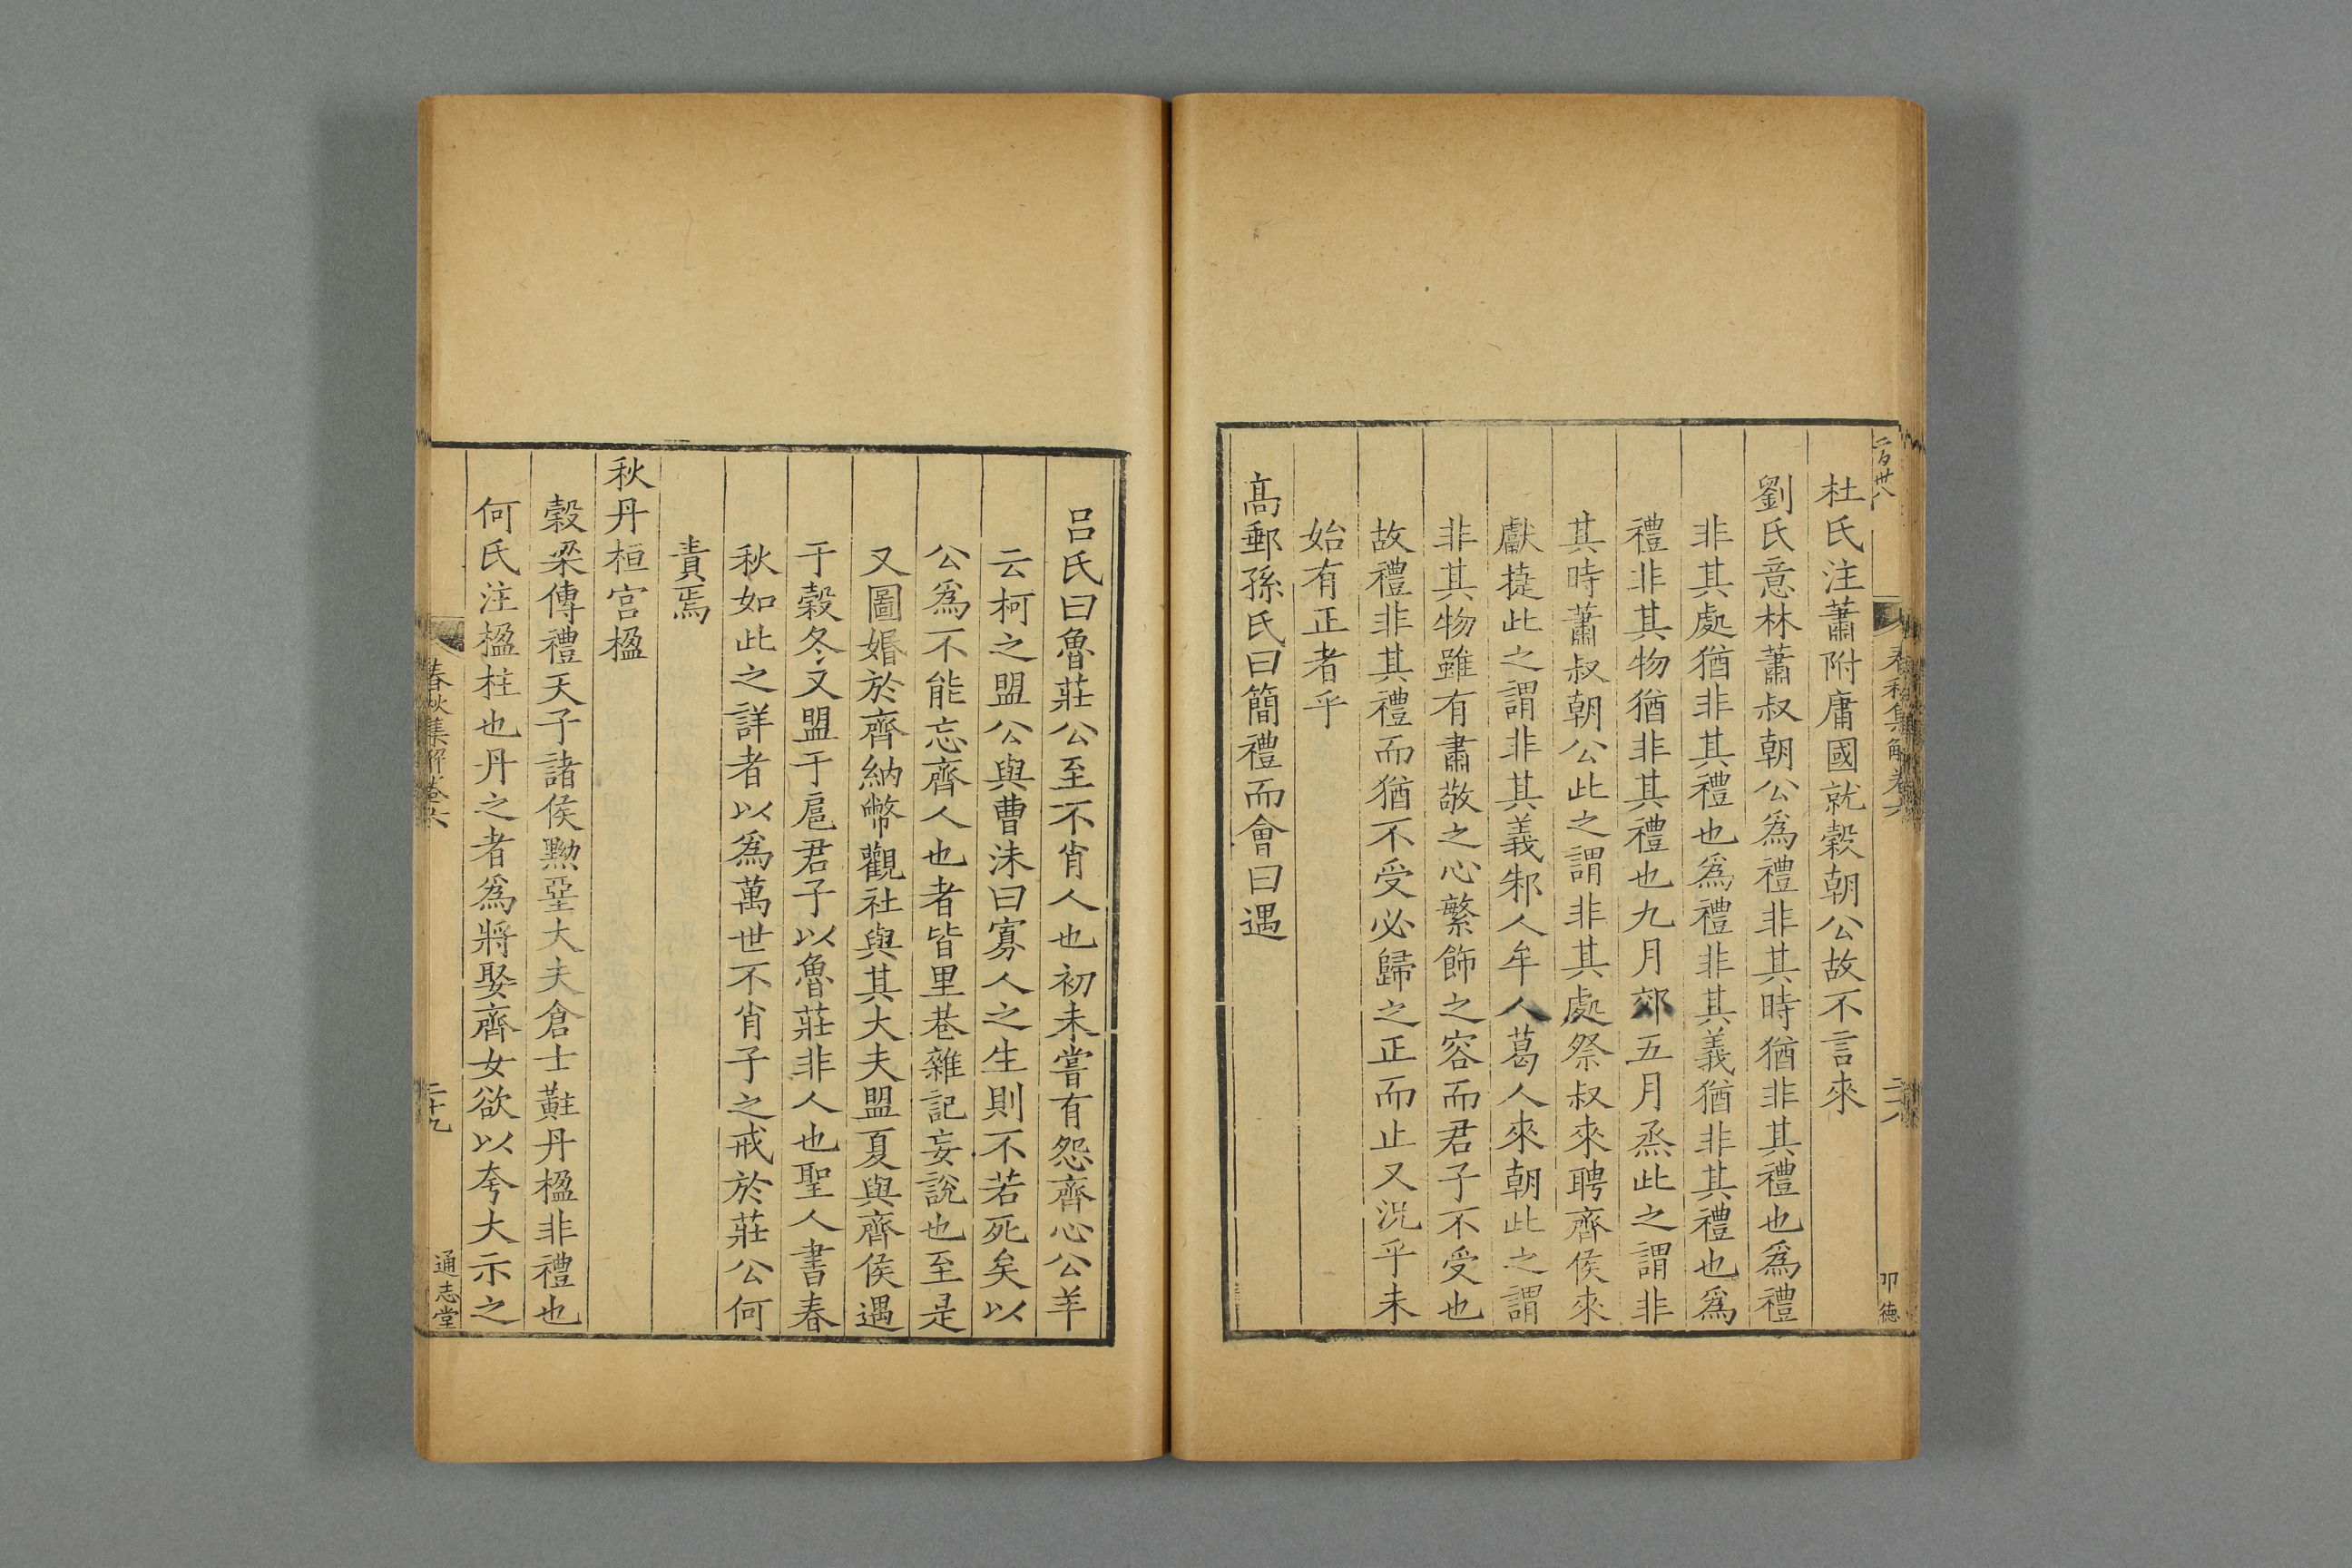 二百卅八
春秋集解卷六
二十八
卭德
杜氏注蕭附庸國就穀朝公故不言來
劉氏意林蕭叔朝公為禮非其時猶非其禮也為禮
非其處猶非其禮也為禮非其義猶非其禮也為
禮非其物猶非其禮也九月郊五月烝此之謂非
其時蕭叔朝公此之謂非其處祭叔來聘齊侯來
獻捷此之謂非其義邾人牟人葛人來朝此之謂
非其物雖有肅敬之心繁飾之容而君子不受也
故禮非其禮而猶不受必歸之正而止又況乎未
始有正者乎
高郵孫氏曰簡禮而會曰遇
呂氏曰魯莊公至不肖人也初未嘗有怨齊心公羊
云柯之盟公與曹沬曰寡人之生則不若死矣以
公為不能忘齊人也者皆里巷雜記妄說也至是
又圖婚於齊納幣觀社與其大夫盟夏與齊侯遇
于穀冬又盟于扈君子以魯莊非人也聖人書春
秋如此之詳者以為萬世不肖子之戒於莊公何
責焉
秋丹桓宮楹
穀梁傳禮天子諸侯黝堊大夫倉士黈丹楹非禮也
何氏注楹柱也丹之者為將娶齊女欲以夸大示之
春秋集解卷六
二十九
通志堂